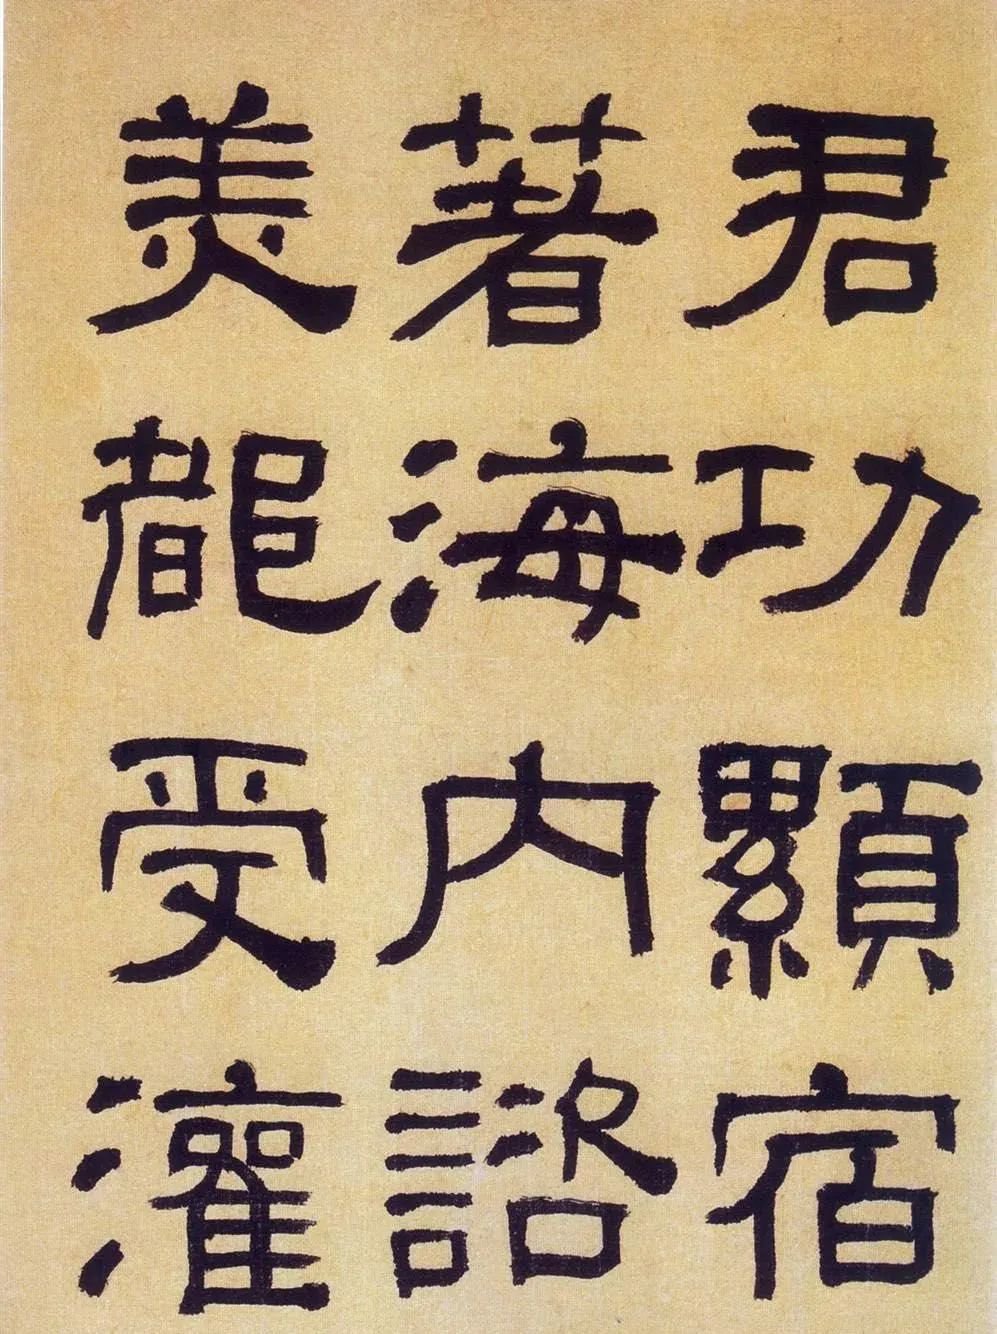 君功顯宿
著海內諮
美都受灌